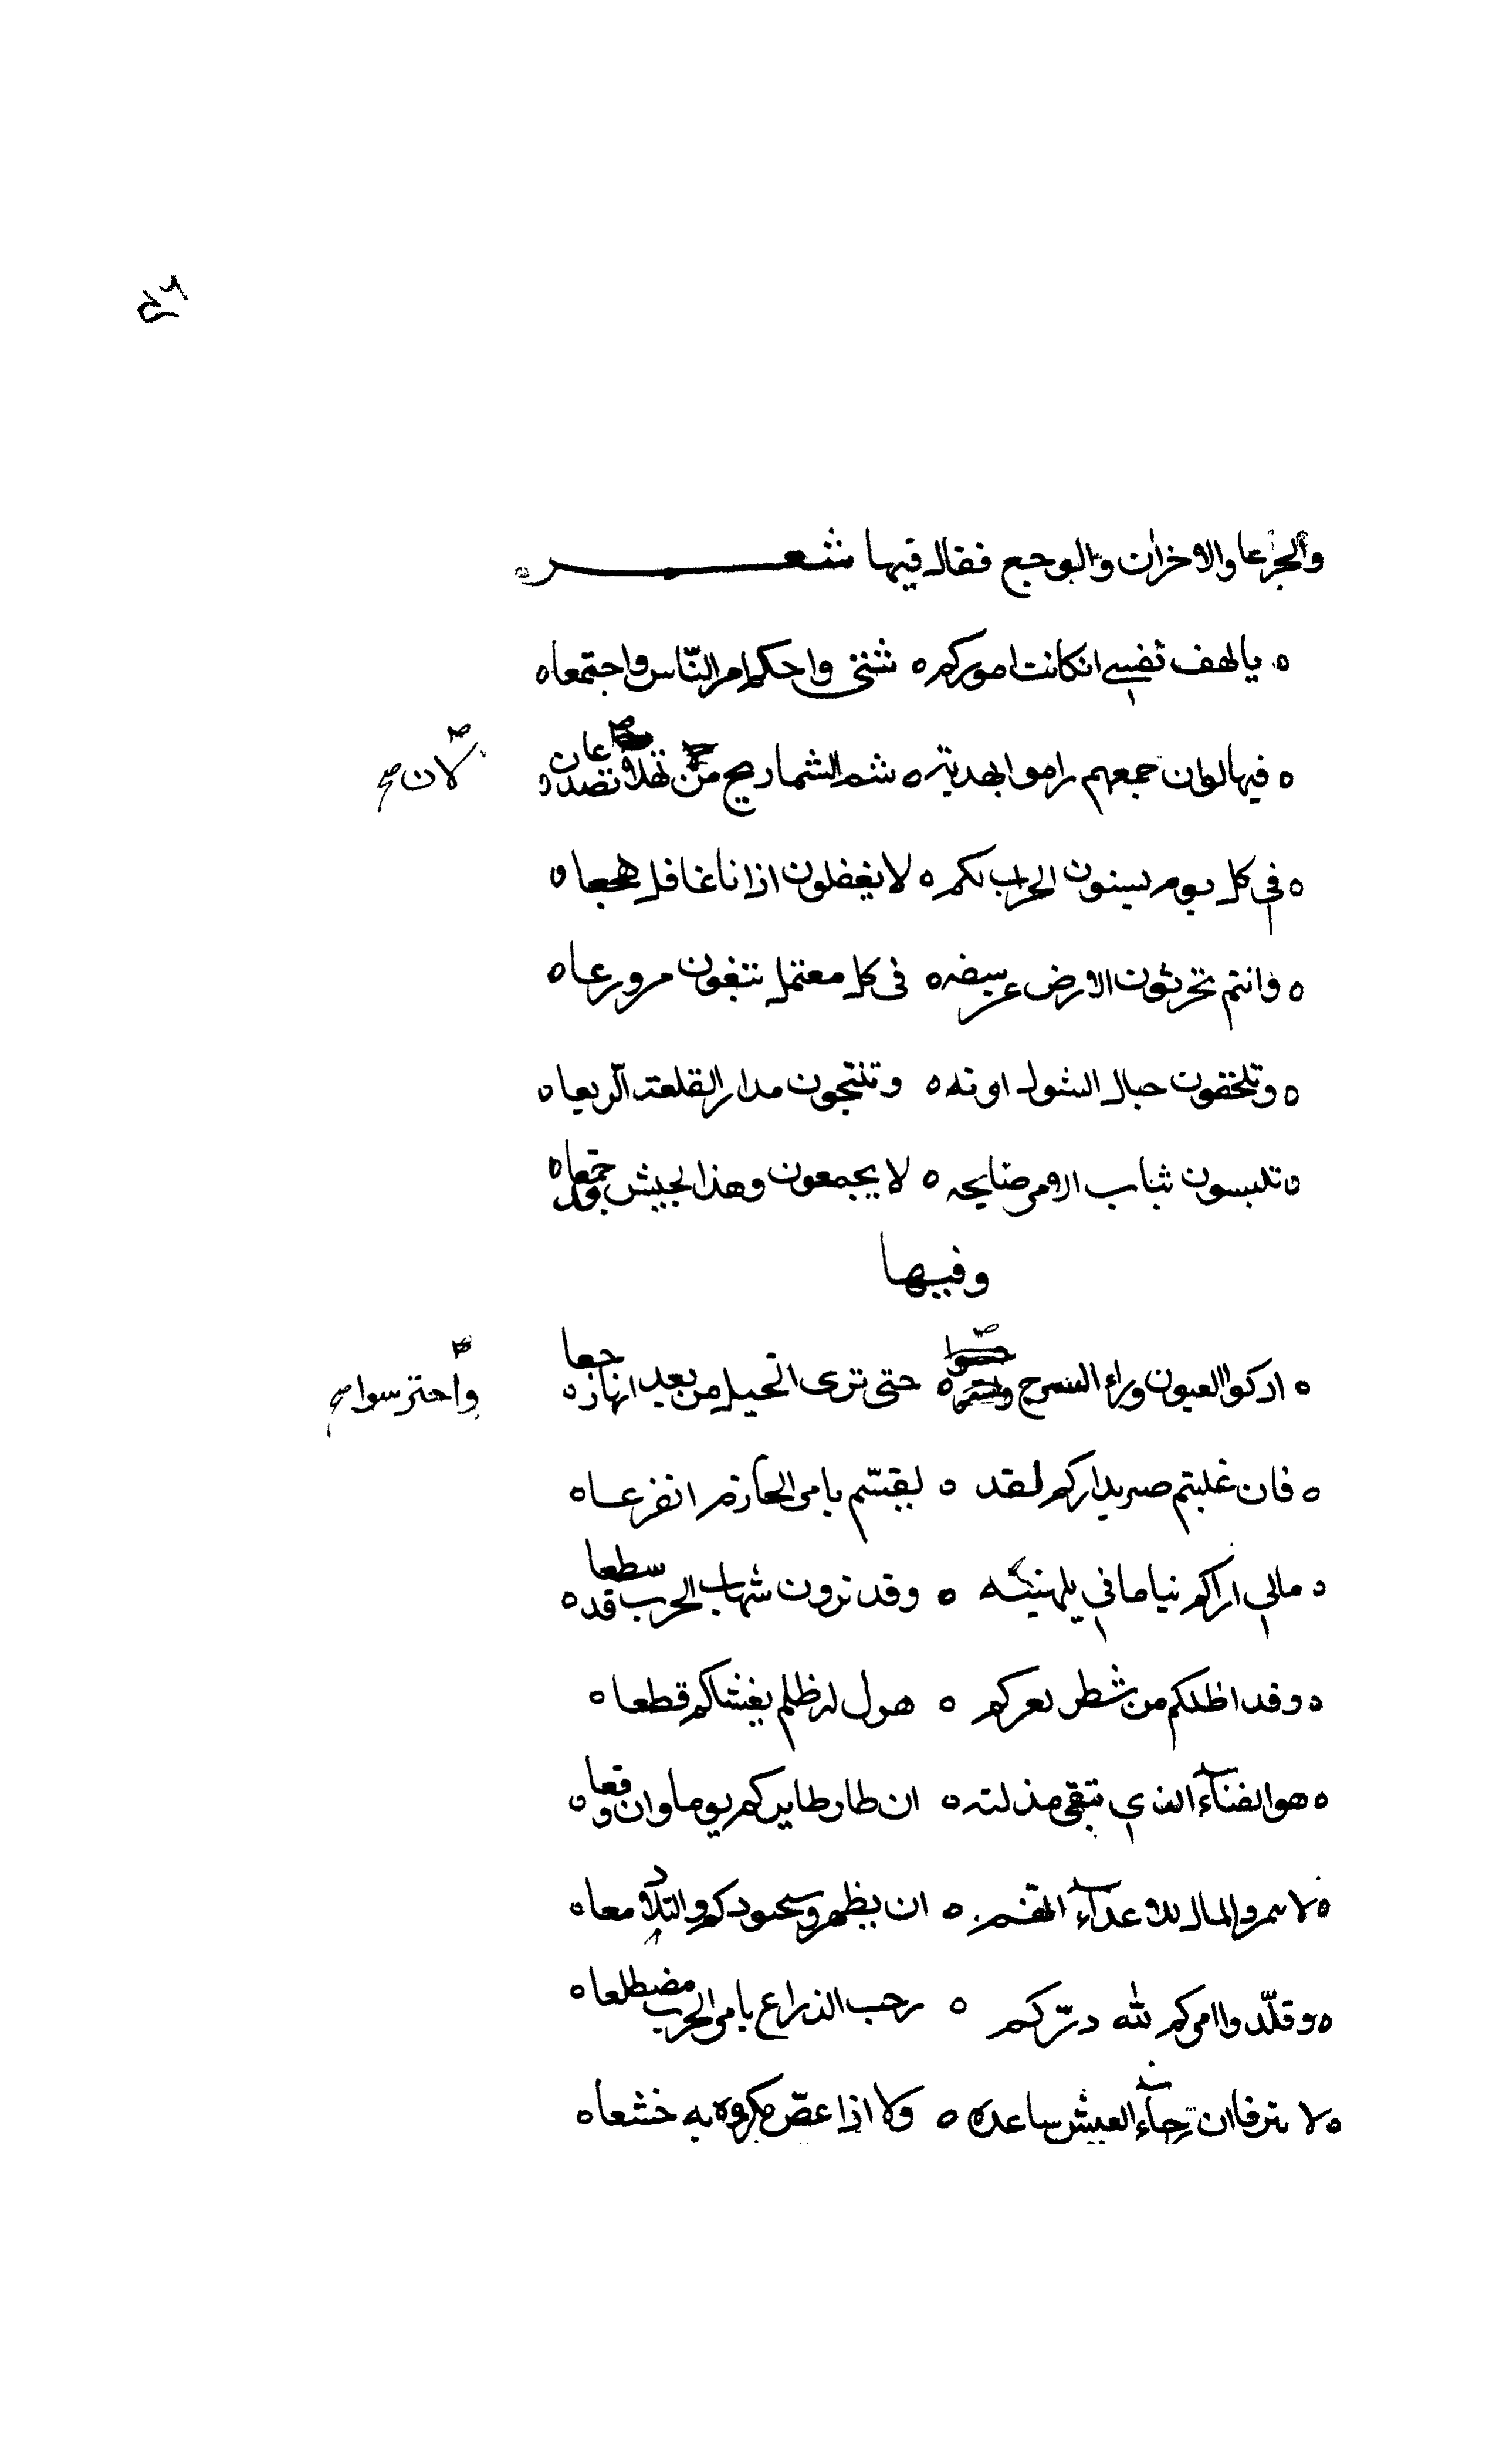 ٤٦
والجزعا والاخزان والوجع فقال فيها شعر
يالهف نفسي انكانت اموركم ه شتى واحكم امر النّاس واجتمعا ه
ه فيها لوان جمعهم راموا بهديته ه شم الشماريخ من ثهلان تصدعا
لان صح
ه في كل يوم يسنون الحراب لكم ه لا يغفلون اذا ما غافل هجعا ه
ه وانتم تحرثون الارض عن سفه ه فى كل معتمل تبغون مزورعا ه
ه وتلحقون حبال الشول اونه ه وتنتجون مدار القلعة الربعا ه
ه تلبسون ثياب الامن ضايحه ه لا يجمعون وهذا الجيش قد جمعا ه
وفيها
ه اذكوا العيون وراء السرح ه حتى ترى الخيل من بعد انهاز جعا ه
واحترسوا صح
ه فان غلبتم ضريداركم لقد ه لقيتم بامر الحازم انفزعا ه
ه مالي اراكم نياما في بلهنيته ه وقد ترون شهاب الحرب قد سطعا ه
ه وقد اظلكم من شطر ثغركم ه هول له ظلم يغشاكم قطعا ه
ه هو الفناء الذي تبقى مذلته ه ان طار طايركم يوما وان وقعا ه
ه لا تثمروا المال للاعداء انهم ه ان يظهروا يحتودكم والتلاد معا ه
ه وقلّدوا امركم لله درّكم ه رحب الذراع بامر الحرب مضطلعا ه
ه لا مترفا ان رخاء العيش ساعده ه ولا اذا عضّ مكروه به خشعا ه